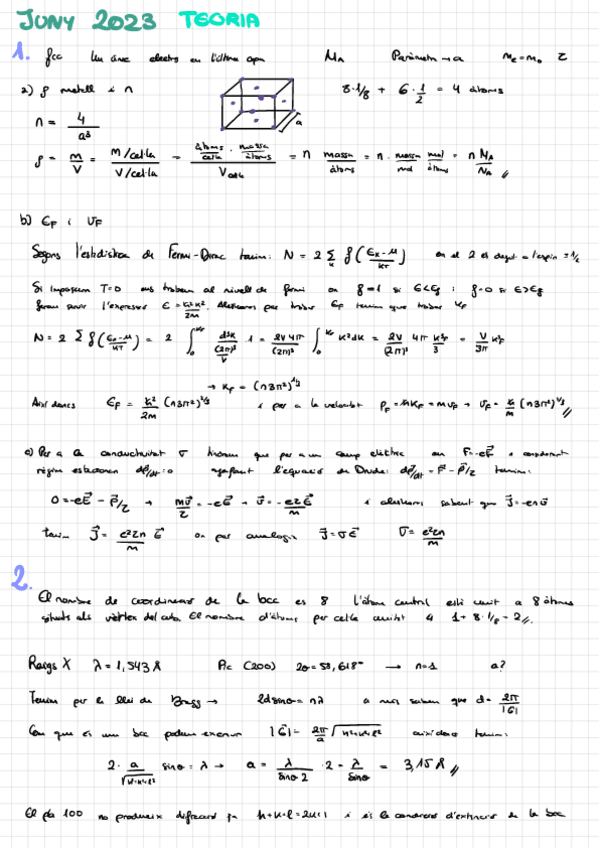 JUNY 2023 TEORIA
1. fcc Un únic electró en l'última capa M_A Paràmetre → a m_e = m_0 τ
a) ρ metall i n 8·1/8 + 6·1/2 = 4 àtoms
n = 4/a³
a
ρ = m/V = (m/cel·la)/(V/cel·la) = (àtoms/cel·la · massa/àtoms)/V_cel·la = n massa/àtoms = n · massa/mol · mol/àtoms = n M_A/N_A //
b) ε_F i v_F
Segons l'estadística de Fermi-Dirac tenim: N = 2 Σ_k f((ε_k-μ)/kT) on el 2 és degut a l'espín ±1/2
Si imposem T=0 ens trobem al nivell de fermi on f=1 si ε<ε_f i f=0 si ε>ε_f
farem servir l'expressió ε = ħ²k²/2m. Aleshores per trobar ε_F tenim que trobar k_F
N = 2 Σ f((ε_k-μ)/kT) = 2 ∫_0^{k_F} d³k/((2π)³/V) 1 = 2V4π/(2π)³ ∫_0^{k_F} k²dk = 2V/(2π)³ 4π k_F³/3 = V/3π k_F³
→ k_F = (n3π²)^{1/3}
Així doncs ε_F = ħ²/2m (n3π²)^{2/3} i per a la velocitat p_F = ħk_F = mv_F → v_F = ħ/m (n3π²)^{1/3} //
c) Per a la conductivitat σ tenim que per a un camp elèctric on F=-eE⃗ i considerant
règim estacionari dp/dt=0 agafant l'equació de Drude: dp⃗/dt = F⃗ - p⃗/τ tenim:
0 = -eE⃗ - p⃗/τ → mv⃗/τ = -eE⃗ → v⃗ = -eτE⃗/m i aleshores sabent que J⃗ = -env⃗
tenim J⃗ = e²τn/m E⃗ on per analogia J⃗ = σE⃗ σ = e²τn/m
2.
El nombre de coordinació de la bcc és 8 l'àtom central està unit a 8 àtoms
situats als vèrtex del cub. El nombre d'àtoms per cel·la unitat és 1 + 8·1/8 = 2 //
Raigs X λ = 1,543 Å Pic (200) 2θ = 58,618° → n=1 a?
Tenim per la llei de Bragg → 2d sinθ = nλ a més sabem que d = 2π/|G|
Com que és un bcc podem escriure |G⃗| = 2π/a √(h²+k²+l²) així doncs tenim:
2· a/√(h²+k²+l²) sinθ = λ → a = λ/(sinθ 2) ·2 = λ/sinθ = 3,15 Å //
El pla 100 no produeix difracció ja h+k+l = 2n+1 i és la condició d'extinció de la bcc